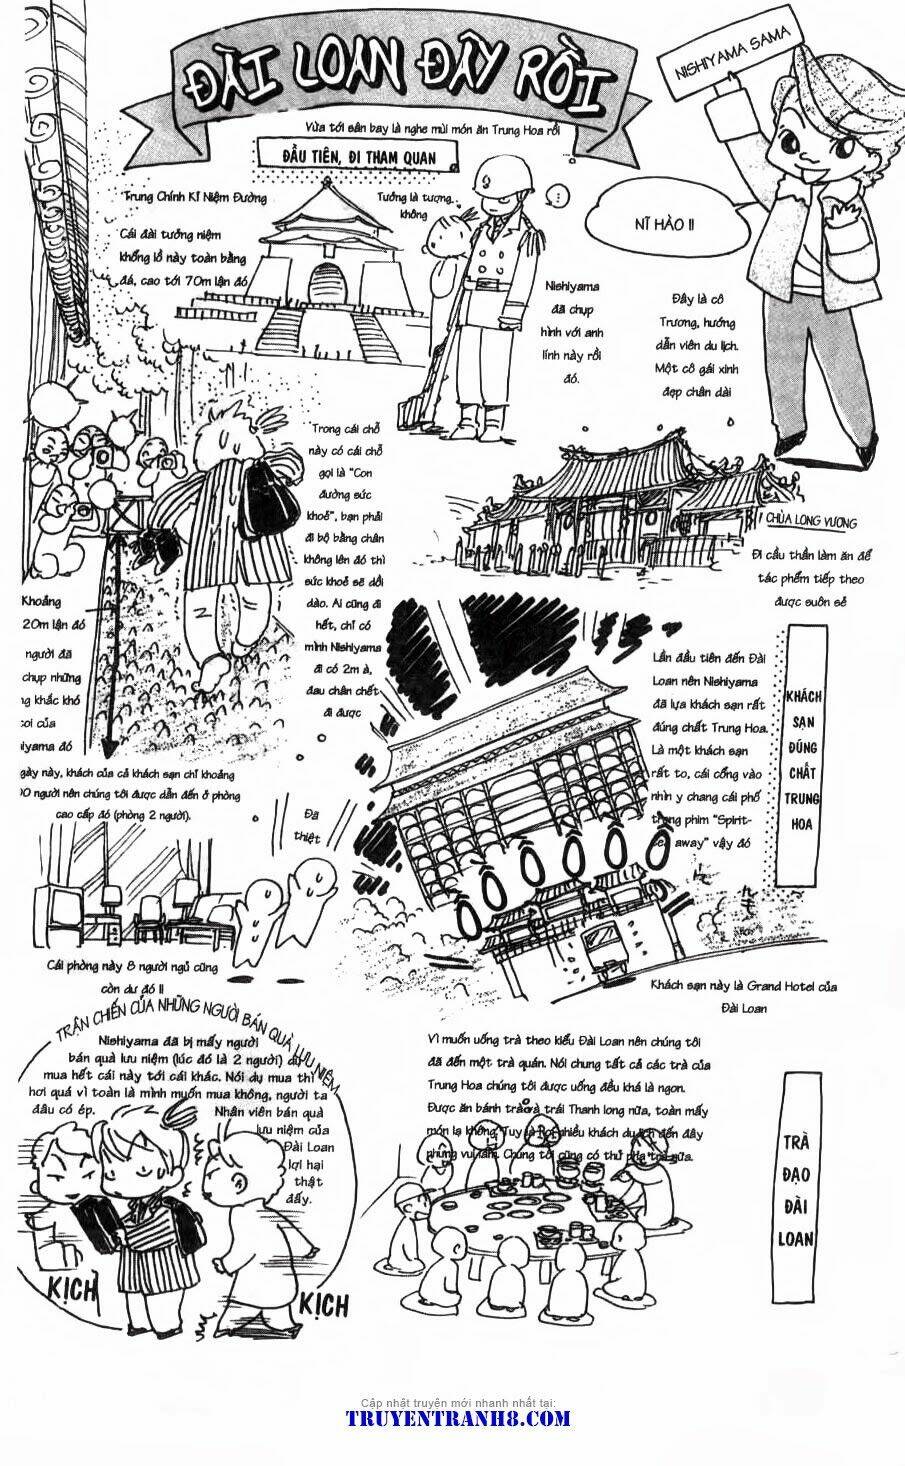 ĐÀI LOAN ĐÂY RỒI
NISHIYAMA SAMA
Vừa tới sân bay là nghe mùi món ăn Trung Hoa rồi
ĐẦU TIÊN, ĐI THAM QUAN
NĨ HÀO !!
Trung Chính Kỉ Niệm Đường
Cái đài tưởng niệm
khổng lồ này toàn bằng
đá, cao tới 70m lận đó
Tưởng là tượng,
không
...
Nishiyama
đã chụp
hình với anh
lính này rồi
đó.
Đây là cô
Trương, hướng
dẫn viên du lịch.
Một cô gái xinh
đẹp chân dài
Trong cái chỗ
này có cái chỗ
gọi là "Con
đường sức
khoẻ", bạn phải
đi bộ bằng chân
không lên đó thì
sức khoẻ sẽ dồi
dào. Ai cũng đi
hết, chỉ có
mình Nishiyama
đi có 2m à,
đau chân chết
đi được
CHÙA LONG VƯƠNG
Đi cầu thần làm ăn để
tác phẩm tiếp theo
được suôn sẻ
Khoảng
20m lận đó
người đã
chụp những
khắc khó
của
đó
này, khách của cả khách sạn chỉ khoảng
người nên chúng tôi được dẫn đến ở phòng
cao cấp đó (phòng 2 người).
Đã
thiệt
Cái phòng này 8 người ngủ cũng
còn dư đó !!
KHÁCH
SẠN
ĐÚNG
CHẤT
TRUNG
HOA
Lần đầu tiên đến Đài
Loan nên Nishiyama
đã lựa khách sạn rất
đúng chất Trung Hoa.
Là một khách sạn
rất to, cái cổng vào
nhìn y chang cái phố
trong phim "Spirit-
away" vậy đó
Ồ Ồ Ồ Ồ Ồ Ồ
Khách sạn này là Grand Hotel của
Đài Loan
TRẬN CHIẾN CỦA NHỮNG NGƯỜI BÁN QUÀ LƯU NIỆM
Nishiyama đã bị mấy người
bán quà lưu niệm (lúc đó là 2 người) dụ
mua hết cái này tới cái khác. Nói dụ mua thì
hơi quá vì toàn là mình muốn mua không, người ta
đâu có ép.
Nhân viên bán quà
lưu niệm của
Đài Loan
lợi hại
thật
đấy.
KỊCH
KỊCH
Vì muốn uống trà theo kiểu Đài Loan nên chúng tôi
đã đến một trà quán. Nói chung tất cả các trà của
Trung Hoa chúng tôi được uống đều khá là ngon.
Được ăn bánh trà và trái Thanh long nữa, toàn mấy
món lạ không. Tuy là hơi nhiều khách du lịch đến đây
nhưng vui lắm. Chúng tôi cũng có thử pha trà nữa.
TRÀ
ĐẠO
ĐÀI
LOAN
Cập nhật truyện mới nhanh nhất tại:
TRUYENTRANH8.COM